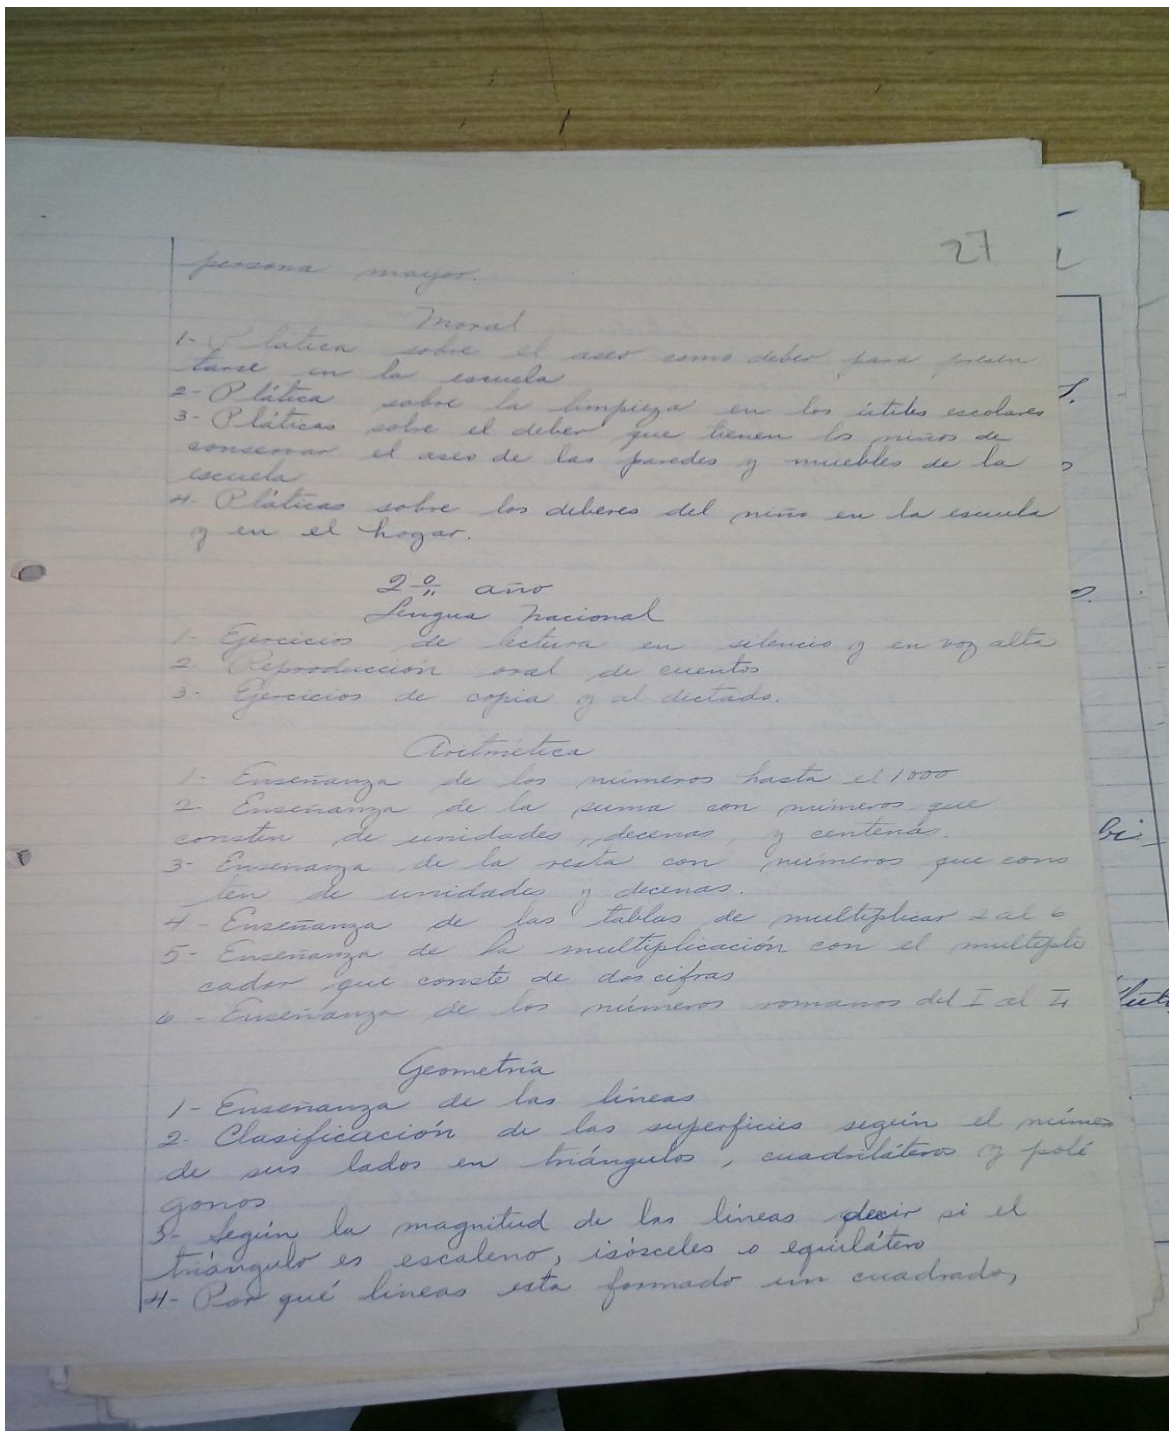 27
persona mayor.
Moral
1- Plática sobre el aseo como deber para presen
tarse en la escuela
2- Plática sobre la limpieza en los útiles escolares
3- Pláticas sobre el deber que tienen los niños de
conservar el aseo de las paredes y muebles de la
escuela
4- Pláticas sobre los deberes del niño en la escuela
y en el hogar.
2º año
Lengua Nacional
1- Ejercicios de lectura en silencio y en voz alta
2- Reproducción oral de cuentos
3- Ejercicios de copia y al dictado.
Aritmética
1- Enseñanza de los números hasta el 1000
2- Enseñanza de la suma con números que
consten de unidades, decenas, y centenas.
3- Enseñanza de la resta con números que cons
ten de unidades y decenas.
4- Enseñanza de las tablas de multiplicar 2 al 6
5- Enseñanza de la multiplicación con el multipli
cador que conste de dos cifras
6- Enseñanza de los números romanos del I al
Geometría
1- Enseñanza de las líneas
2- Clasificación de las superficies según el número
de sus lados en triángulos, cuadriláteros y polí
gonos
3- Según la magnitud de las líneas decir si el
triángulo es escaleno, isósceles o equilátero
4- Por qué líneas esta formado un cuadrado,
bi-